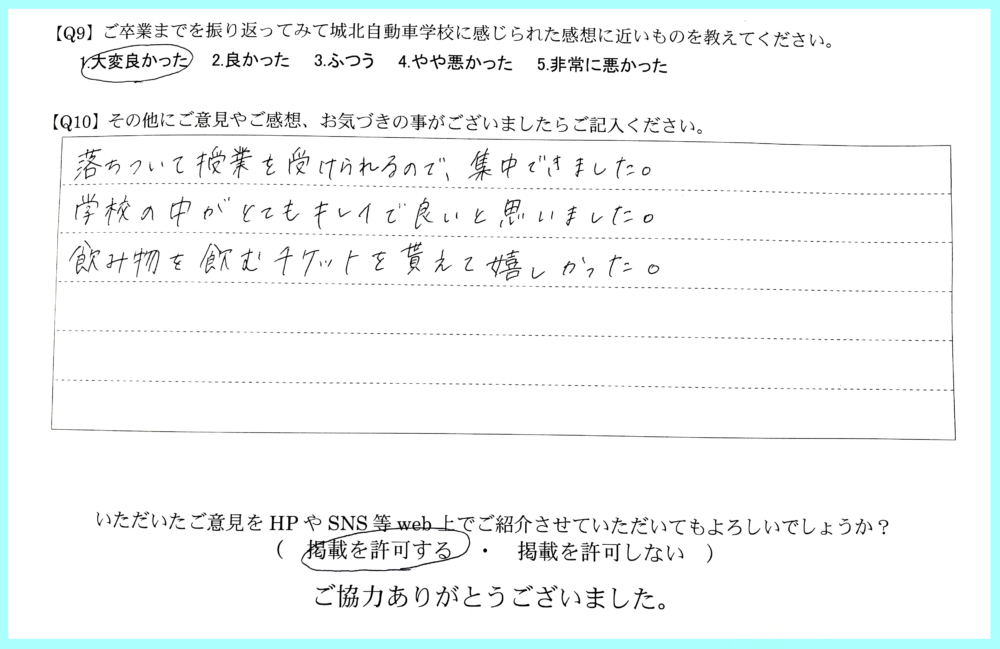 【Q9】ご卒業までを振り返ってみて城北自動車学校に感じられた感想に近いものを教えてください。
1.大変良かった 2.良かった 3.ふつう 4.やや悪かった 5.非常に悪かった
【Q10】その他にご意見やご感想、お気づきの事がございましたらご記入ください。
落ちついて授業を受けられるので、集中できました。
学校の中がとてもキレイで良いと思いました。
飲み物を飲むチケットを貰えて嬉しかった。
いただいたご意見をHPやSNS等web上でご紹介させていただいてもよろしいでしょうか？
( 掲載を許可する ・ 掲載を許可しない )
ご協力ありがとうございました。